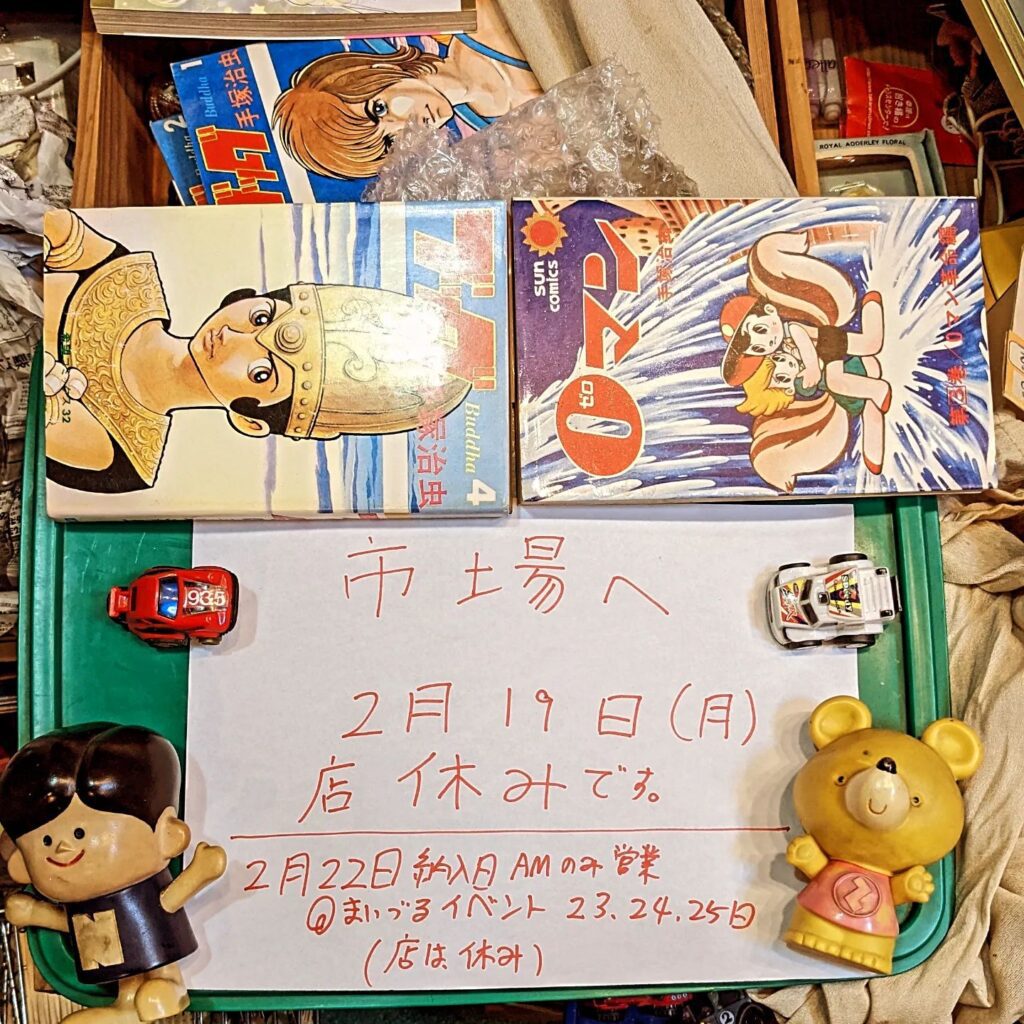 1
Buddha
手塚治虫
ブッダ
2
ROYAL ADDERLEY FLORAL
ブッダ
Buddha
4
32
SUN
comics
0マン
手塚治虫
市 土場へ
2月 19 日(月)
店 休みです。
2月22日 納入日 AMのみ 営業
@まいづるイベント 23.24.25日
(店は休み)
935
N
M